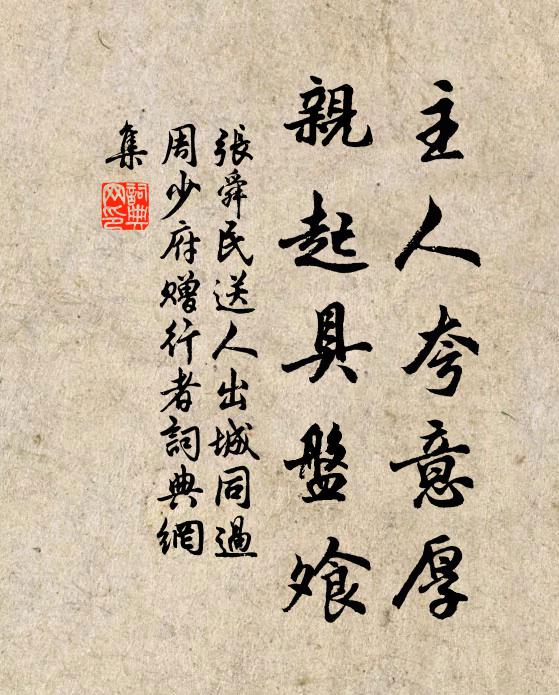 主人夸意厚
親起具盤飱
張舜民送人出城同過
周少府贈行者詞典網
集
詞典
网印